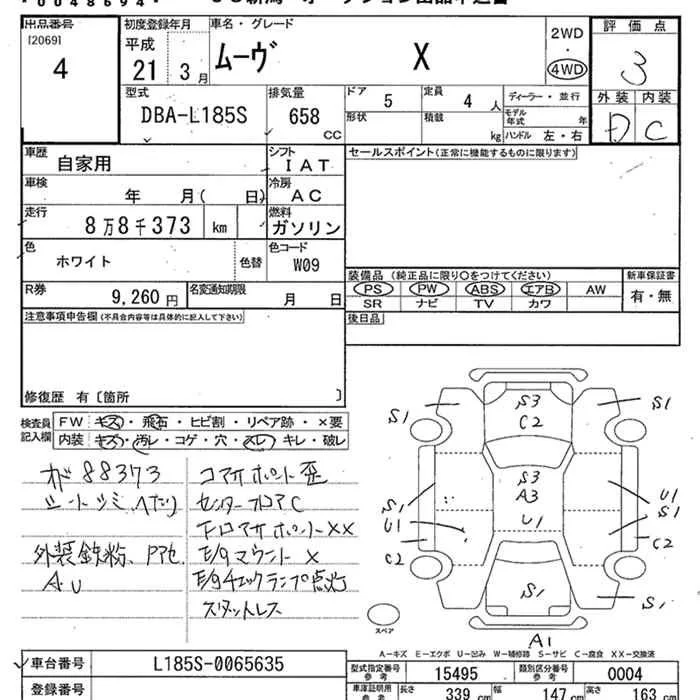 出品番号
[2069]
4
初度登録年月
平成
21 3月
車名・グレード
ムーヴ X
2WD
・
4WD
評価点
3
外装 内装
D C
型式
DBA-L185S
排気量
658
CC
ドア 5
定員 4 人
形状
積載 kg
ディーラー・並行
モデル年式 年
ハンドル 左・右
車歴
自家用
シフト
IAT
車検
年 月( 日)
冷房
AC
走行
8万8千373 km
燃料
ガソリン
色
ホワイト
色替
色コード
W09
R券
9,260 円
名変通知期限
月 日
セールスポイント(正常に機能するものに限ります)
装備品 (純正品に限り○をつけてください)
PS PW ABS エアB AW
SR ナビ TV カワ
新車保証書
有・無
後日品
注意事項申告欄(不具合内容等は具体的に記入して下さい)
修復歴 有〔箇所 〕
検査員
記入欄
FW キズ・飛石・ヒビ割・リペア跡・×要
内装 キズ・汚レ・コゲ・穴・スレ・キレ・破レ
ガ88373
シートシミ、ヘタリ
外装鉄粉、Pアセ
AU
コアサポート歪
センターフロアC
FロアサポートXX
E/gマウント×
E/gチェックランプ点灯
スタットレス
S3
C2
S1
S1
S3
A3
U1
S1
U1
C2
U1
S1
C2
S1
S1
A1
スペア
A-キズ E-エクボ U-凹み W-補修跡 S-サビ C-腐食 XX-交換済
車台番号
L185S-0065635
登録番号
型式指定番号
参考
15495
類別区分番号
参考
0004
車庫証明用
参考
長さ
339 cm
幅
147 cm
高さ
163 cm